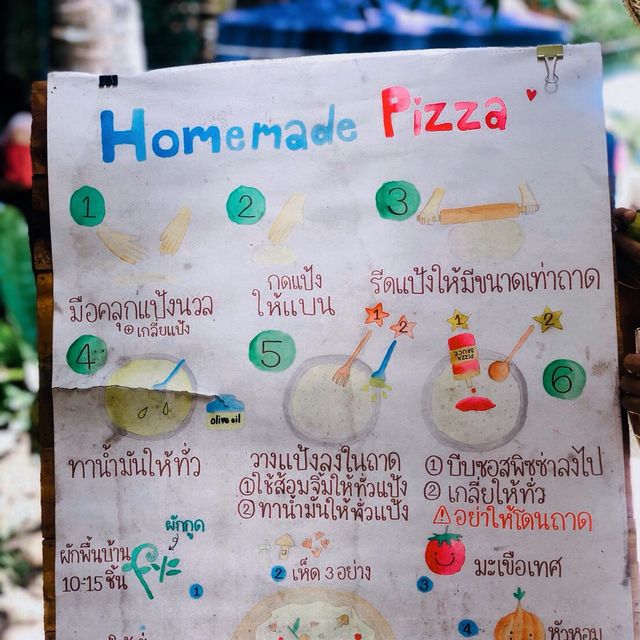 Homemade Pizza
1
2
3
มือคลุกแป้งนวล
+ เกลี่ยแป้ง
กดแป้ง
ให้แบน
รีดแป้งให้มีขนาดเท่าถาด
4
olive oil
ทาน้ำมันให้ทั่ว
5
1 2
วางแป้งลงในถาด
① ใช้ส้อมจิ้มให้ทั่วแป้ง
② ทาน้ำมันให้ทั่วแป้ง
6
1 2
PIZZA SAUCE
① บีบซอสพิซซ่าลงไป
② เกลี่ยให้ทั่ว
อย่าให้โดนถาด
ผักกูด
ผักพื้นบ้าน
10-15 ชิ้น
1
2 เห็ด 3 อย่าง
3 มะเขือเทศ
4 หัวหอม